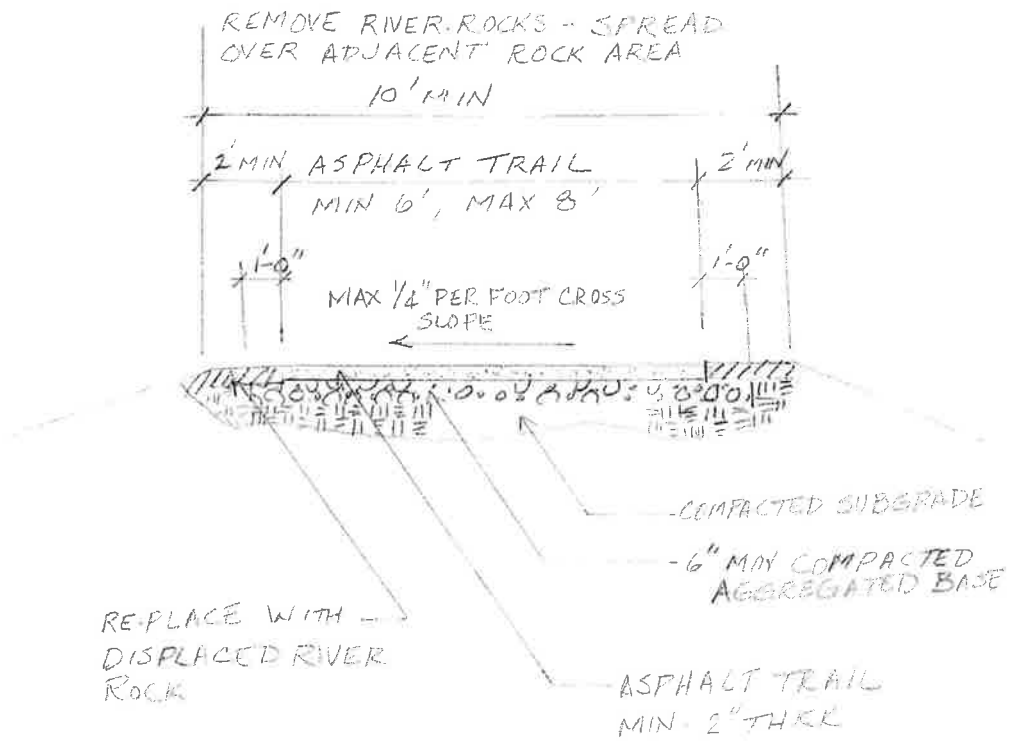 REMOVE RIVER ROCKS - SPREAD
OVER ADJACENT ROCK AREA
10' MIN
2' MIN ASPHALT TRAIL 2' MIN
MIN 6', MAX 8'
1'-0" 1'-0"
MAX 1/4" PER FOOT CROSS
SLOPE
-COMPACTED SUBGRADE
-6" COMPACTED
AGGREGATED BASE
RE-PLACE WITH
DISPLACED RIVER
ROCK
ASPHALT TRAIL
MIN. 2" THICK